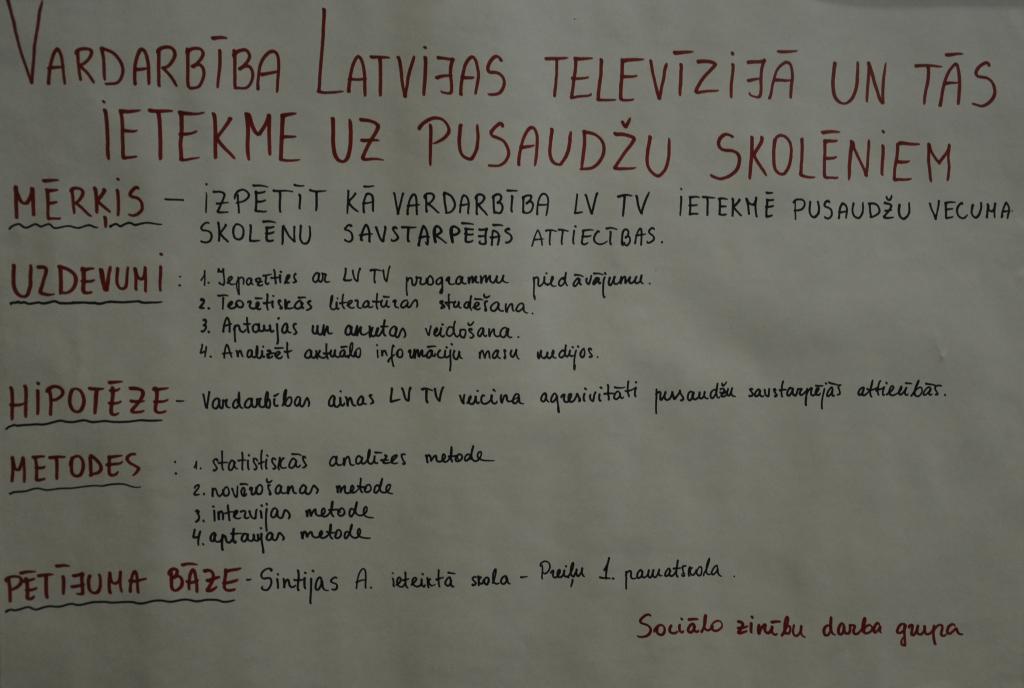 VARDARBĪBA LATVIJAS TELEVĪZIJĀ UN TĀS
IETEKME UZ PUSAUDŽU SKOLĒNIEM
MĒRĶIS – IZPĒTĪT KĀ VARDARBĪBA LV TV IETEKMĒ PUSAUDŽU VECUMA
SKOLĒNU SAVSTARPĒJĀS ATTIECĪBAS.
UZDEVUMI : 1. Iepazīties ar LV TV programmu piedāvājumu.
2. Teorētiskās literatūras studēšana.
3. Aptaujas un anketas veidošana.
4. Analizēt aktuālo informāciju masu medijos.
HIPOTĒZE – Vardarbības ainas LV TV veicina agresivitāti pusaudžu savstarpējās attiecībās.
METODES : 1. statistiskās analīzes metode
2. novērošanas metode
3. intervijas metode
4. aptaujas metode
PĒTĪJUMA BĀZE – Sintijas A. ieteiktā skola – Preiļu 1. pamatskola.
Sociālo zinību darba grupa